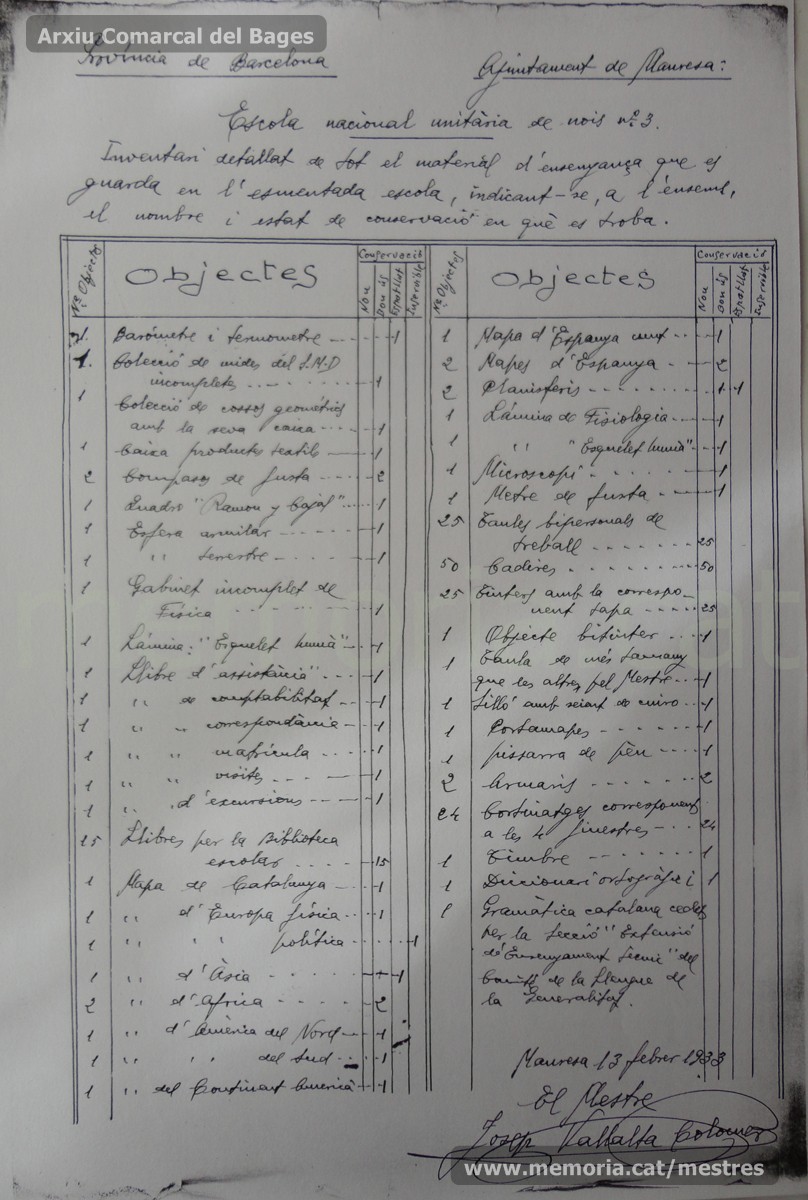 Arxiu Comarcal del Bages
Província de Barcelona
Ajuntament de Manresa:
Escola nacional unitària de nois nº 3.
Inventari detallat de tot el material d'ensenyança que es
guarda en l'esmentada escola, indicant-se, a l'ensems,
el nombre i estat de conservació en què es troba.
Nº Objectes
Objectes
Conservació
Nou
Bon ús
Espatllat
Inservible
1. Baròmetre i termometre 1
1. Colecció de mides del S.M.D
incompletes 1
1 Colecció de cossos geomètrics
amb la seva caixa 1
1 Caixa productes textils 1
2 Compasos de fusta 2
1 Quadre "Ramon y Cajal" 1
1 Esfera armilar 1
1 " terrestre 1
1 Gabinet incomplet de
Física 1
1 Làmina: "Esquelet humà" 1
1 Llibre d'assistència" 1
1 " de comptabilitat 1
1 " " correspondància 1
1 " " matrícula 1
1 " " visites 1
1 " d'excursions 1
15 Llibres per la Biblioteca
escolar 15
1 Mapa de Catalunya 1
1 " d'Europa física 1
1 " " política 1
1 " d'Àsia 1
2 " d'Africa 2
1 " d'Amèrica del Nord 1
1 " " del Sud 1
1 " del Continent Americà 1
Nº Objectes
Objectes
Conservació
Nou
Bon ús
Espatllat
Inservible
1 Mapa d'Espanya mut 1
2 Mapes d'Espanya 2
2 Planisferis 1 1
1 Làmina de Fisiologia 1
1 " "Esquelet humà" 1
1 Microscopi 1
1 Metre de fusta 1
25 Taules bipersonals de
treball 25
50 Cadires 50
25 Tinters amb la correspo-
nent tapa 25
1 Objecte bitinter 1
1 Taula de més tamany
que les altres pel Mestre 1
1 Silló amb seient de cuiro 1
1 Portamapes 1
1 pissarra de pèu 1
2 Armaris 2
24 Cortinatges corresponent
a les 4 finestres 24
1 Timbre 1
1 Diccionari ortogràfic i 1
1 Gramàtica catalana cedits
per la Secció "Extensió
d'Ensenyament Tècnic" del
de la Llengua de
la Generalitat.
Manresa 13 febrer 1933
El Mestre
Josep Vallalta Colomer
www.memoria.cat/mestres